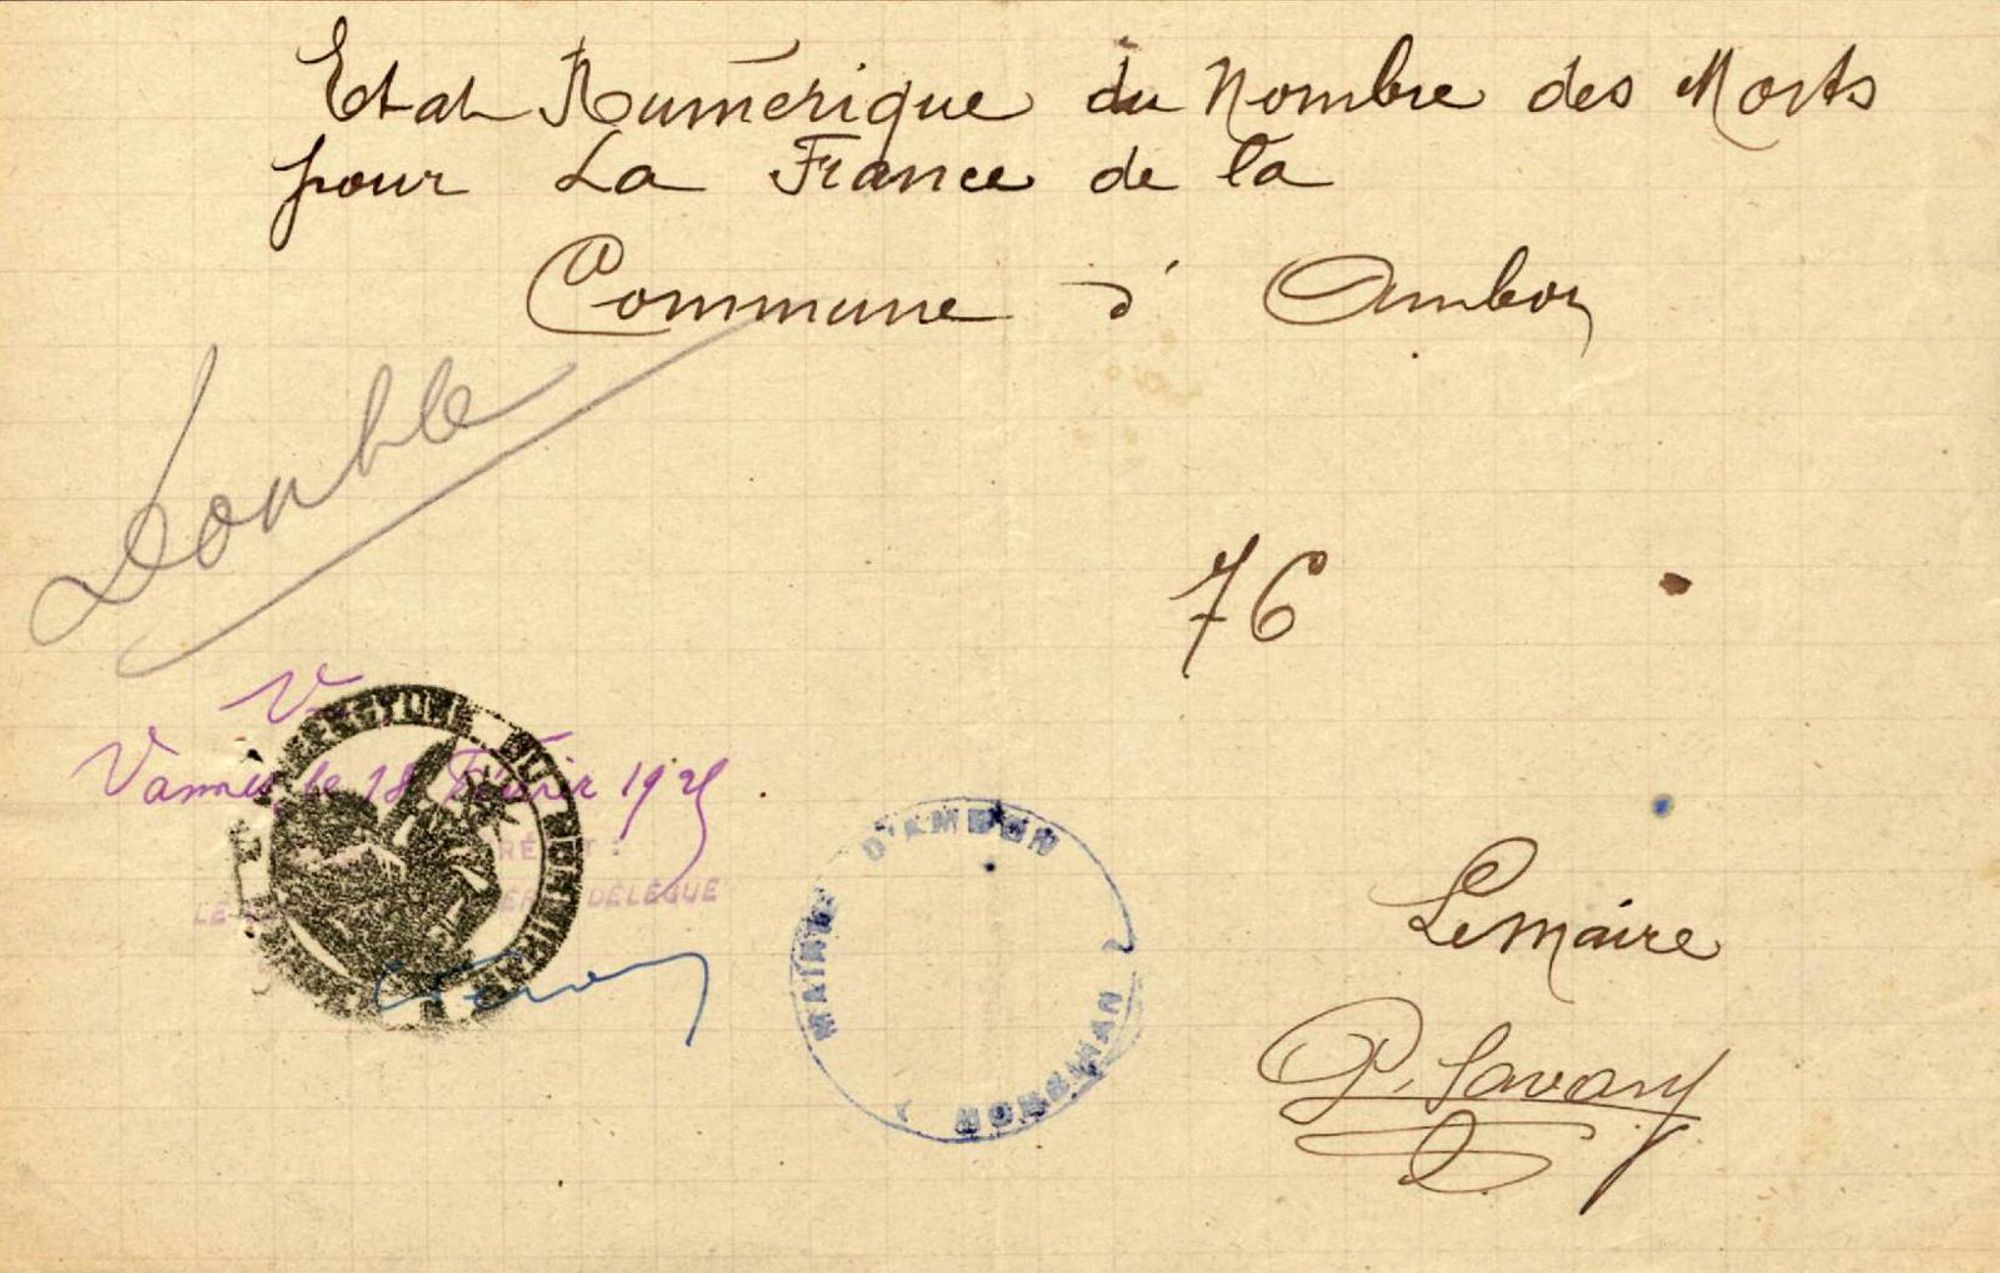 Etat Numérique du Nombre des Morts
pour La France de la
Commune d' Ambon
Double
76
Vannes, le 18 Février 192
DÉLÉGUÉ
MAIRIE D'AMBON
MORBIHAN
Le maire
P. Savary